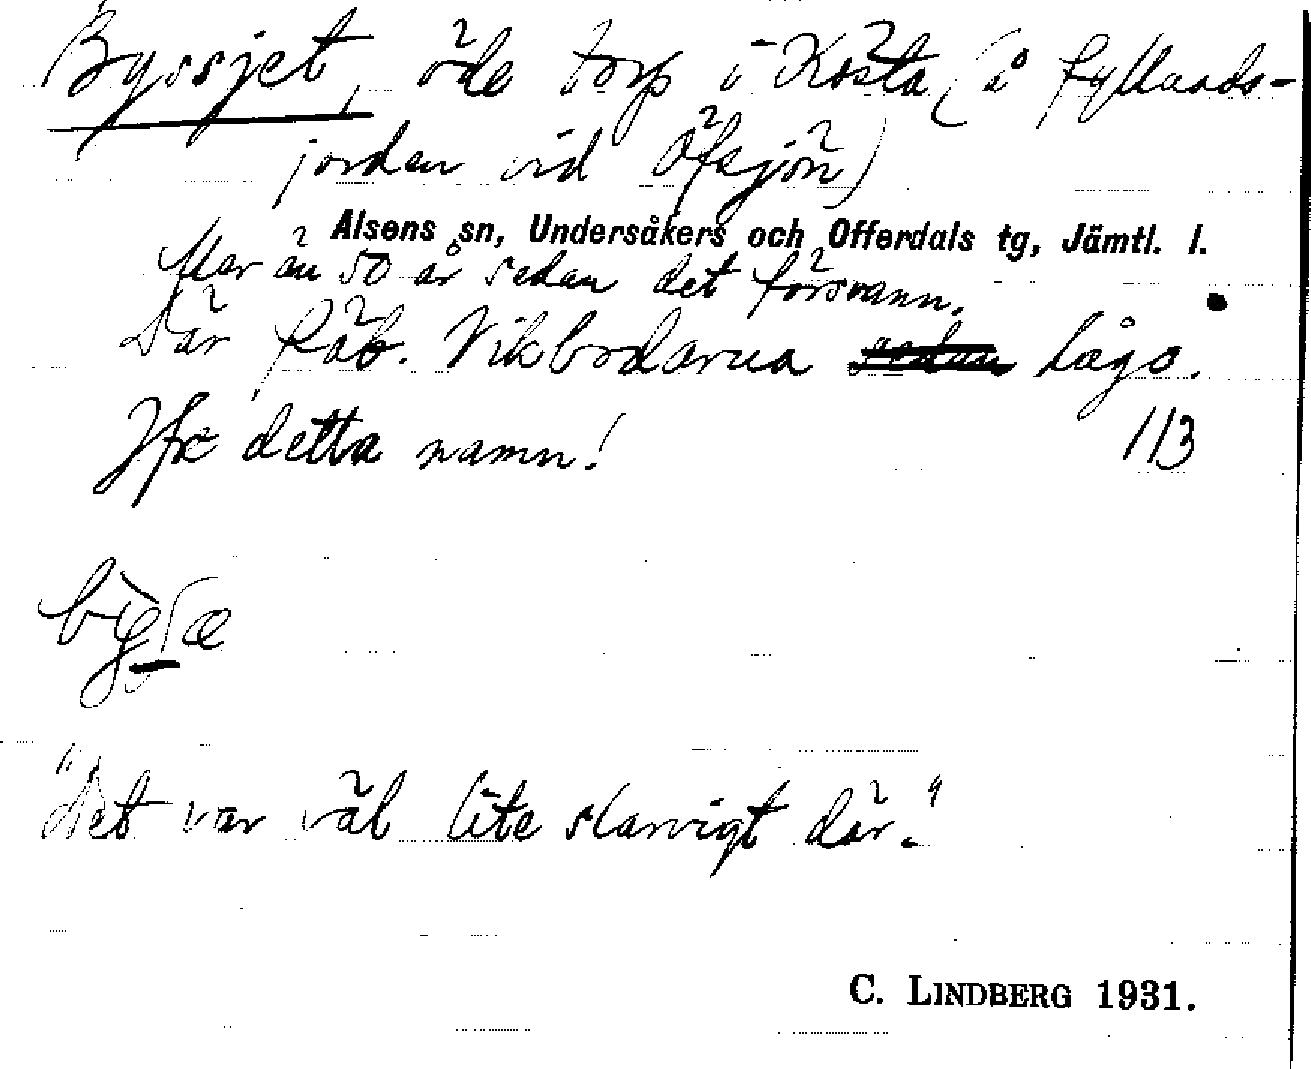 Byssjet, öde torp i Kösta (å Fyllands-
jorden vid Öfsjön)
Alsens sn, Undersåkers och Offerdals tg, Jämtl. l.
Mer än 50 år sedan det försvann.
Där fäb. Vikbodarna lågo.
Jfr detta namn! 113
"Det var väl lite slarvigt där."
C. LINDBERG 1931.